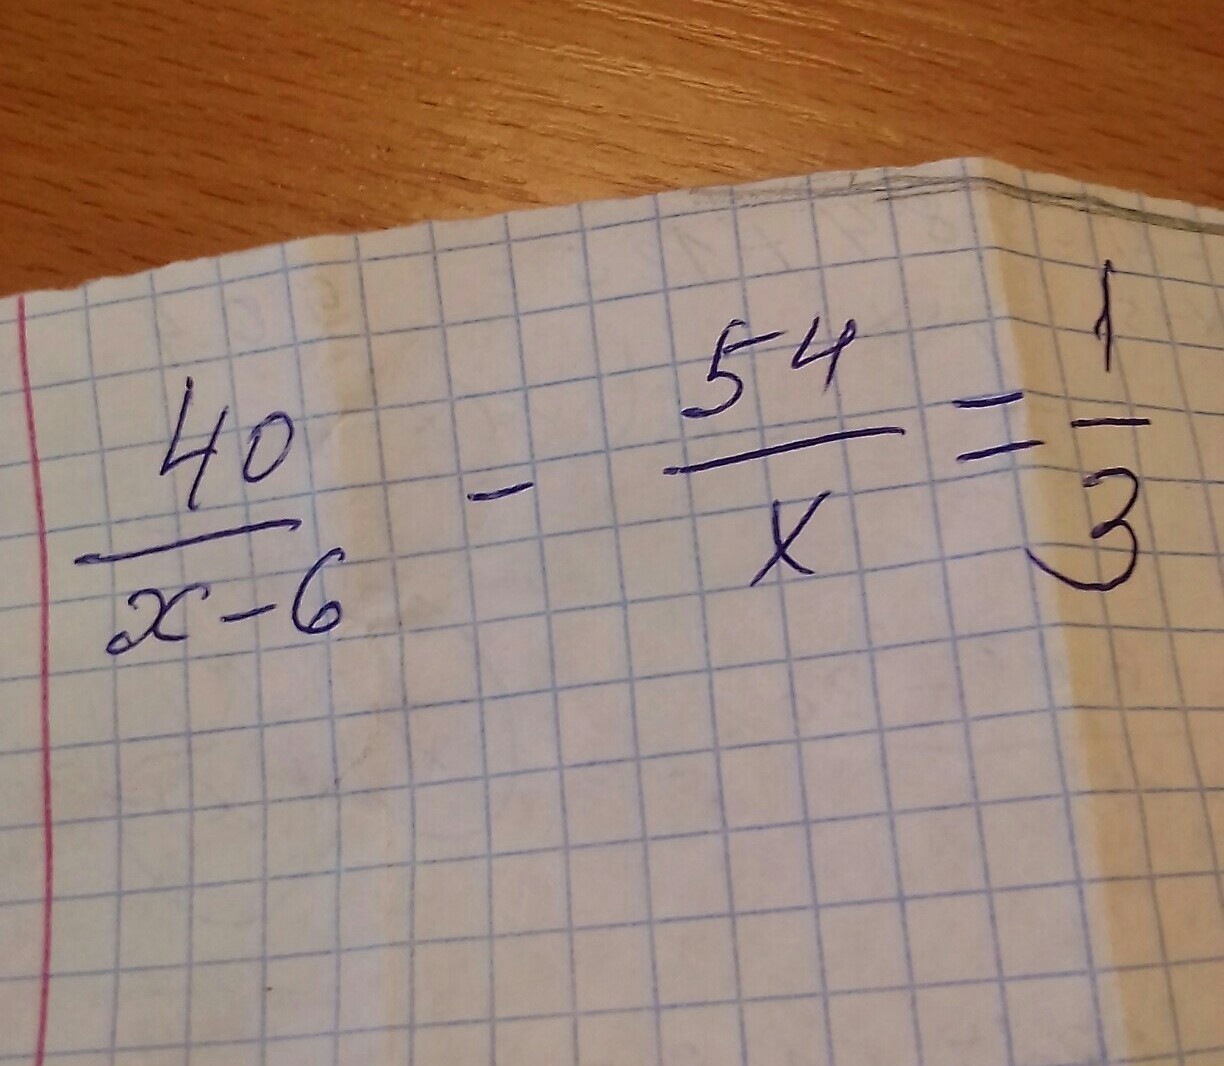 40/(x-6) - 54/x = 1/3